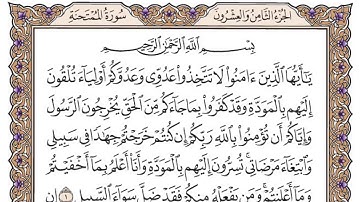 الجزء الثامن والعشرون سورة الممتحنة
بِسْمِ اللَّهِ الرَّحْمَٰنِ الرَّحِيمِ
يَا أَيُّهَا الَّذِينَ ءَامَنُوا لَا تَتَّخِذُوا عَدُوِّي وَعَدُوَّكُمْ أَوْلِيَاءَ تُلْقُونَ
إِلَيْهِم بِالْمَوَدَّةِ وَقَدْ كَفَرُوا بِمَا جَاءَكُم مِّنَ الْحَقِّ يُخْرِجُونَ الرَّسُولَ
وَإِيَّاكُمْ أَن تُؤْمِنُوا بِاللَّهِ رَبِّكُمْ إِن كُنتُمْ خَرَجْتُمْ جِهَادًا فِي سَبِيلِي
وَابْتِغَاءَ مَرْضَاتِي تُسِرُّونَ إِلَيْهِم بِالْمَوَدَّةِ وَأَنَا أَعْلَمُ بِمَا أَخْفَيْتُمْ
وَمَا أَعْلَنتُمْ وَمَن يَفْعَلْهُ مِنكُمْ فَقَدْ ضَلَّ سَوَاءَ السَّبِيلِ ١ إِن